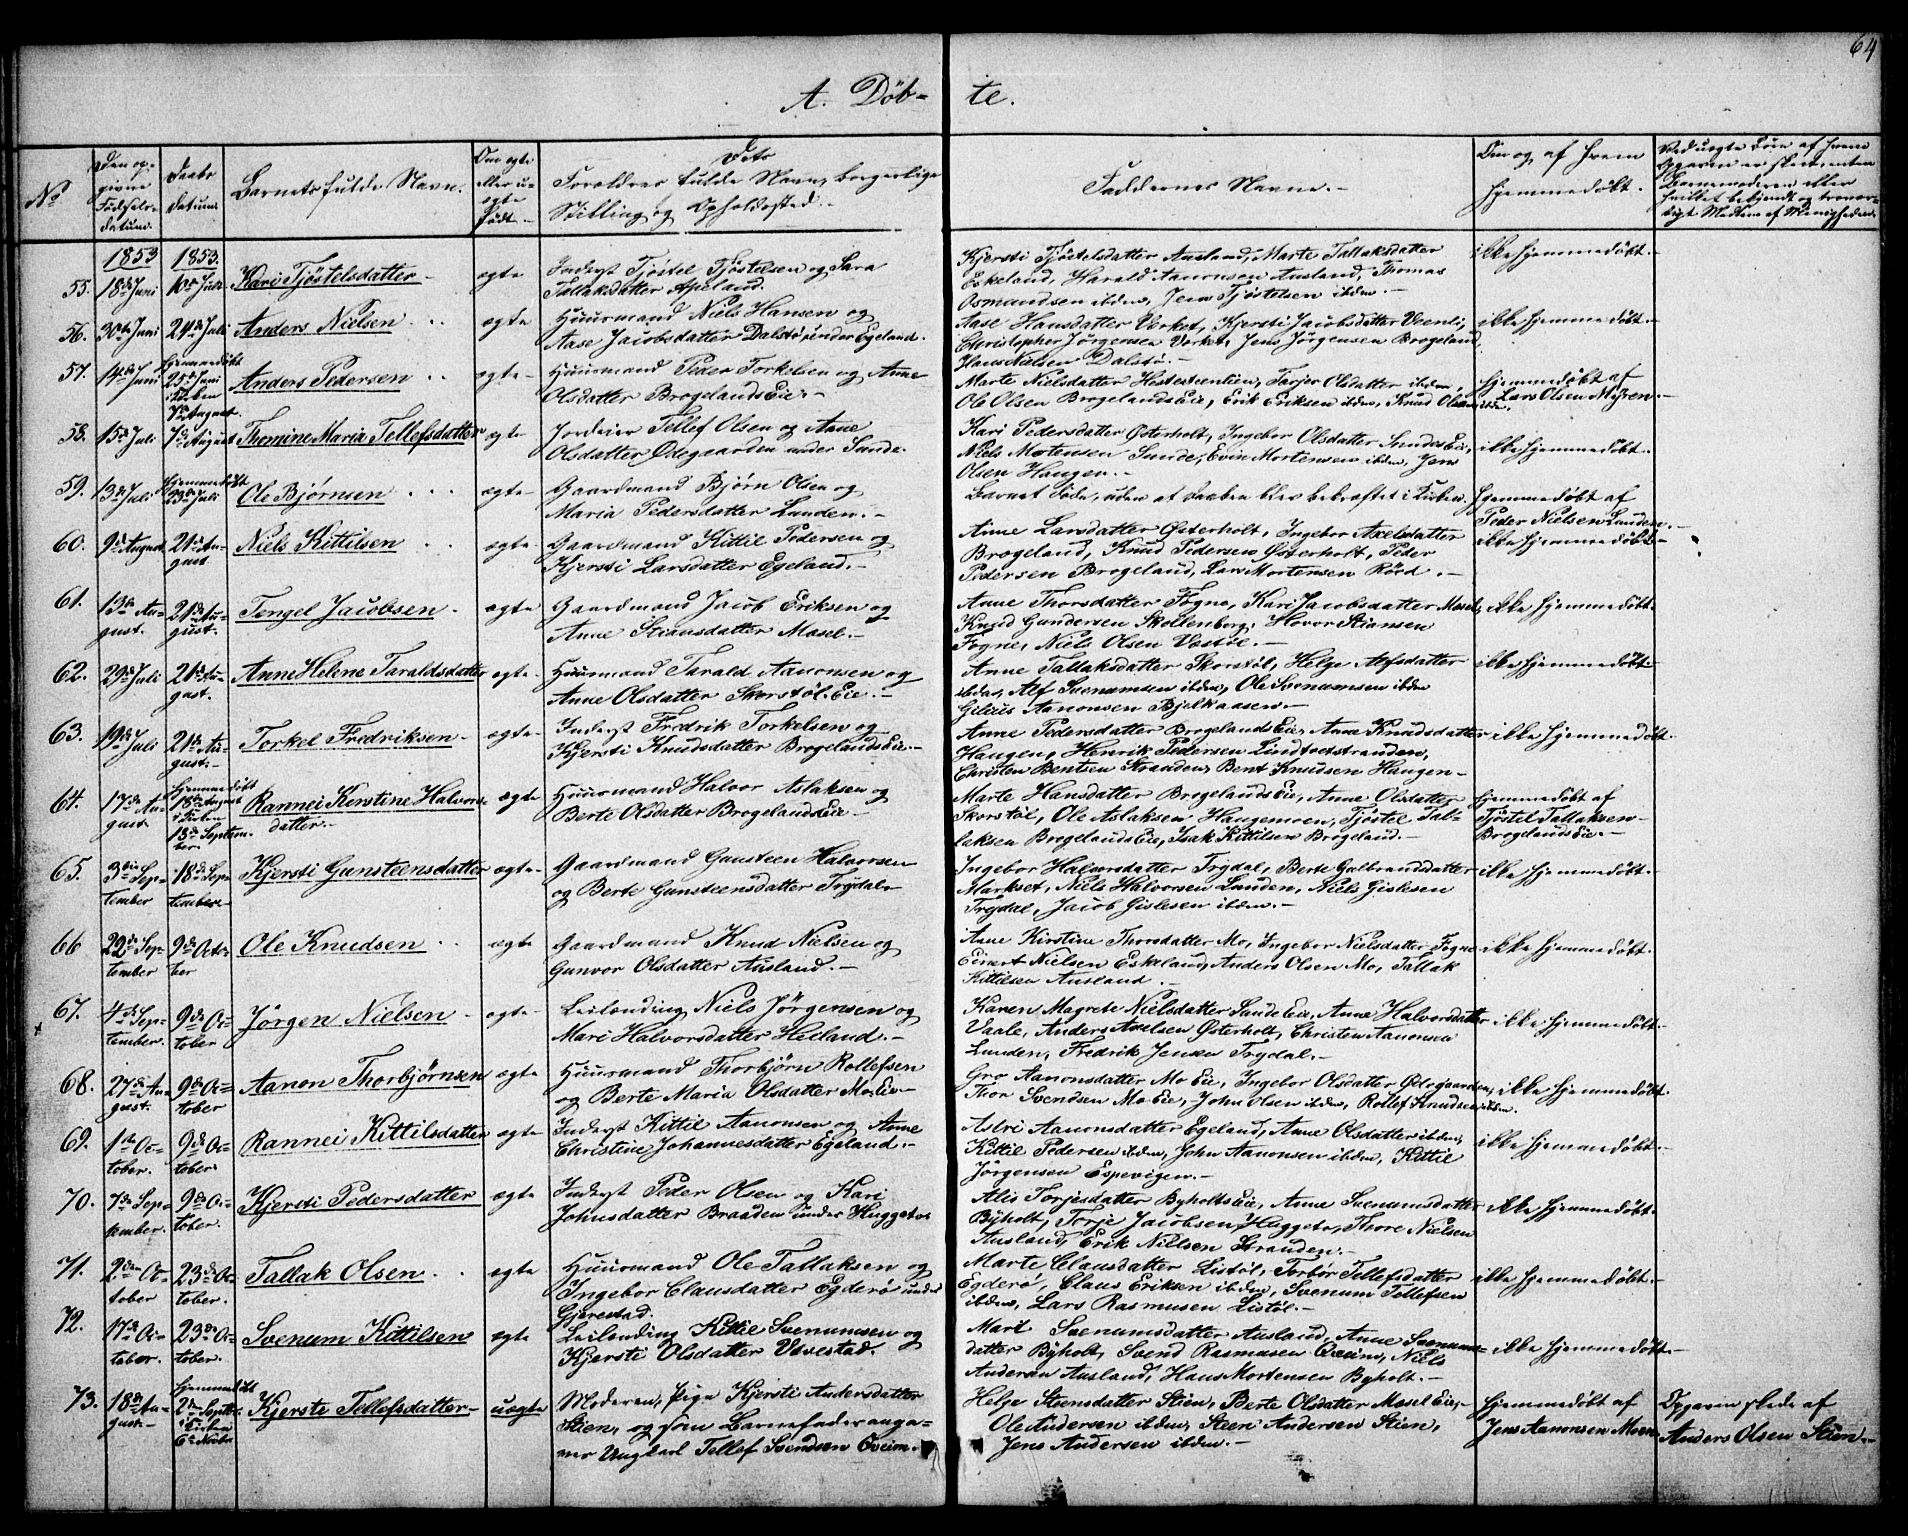 64
A. Døb- te.
No
Den op-
givne
Fødsels-
datum.
Daabs
datum
Barnets fulde Navn.
Om ægte
eller u-
ægte
født.
Dets
Forældres fulde Navn, borgerlige
Stilling og Opholdssted.
Faddernes Navne.
Om og af hvem
hjemmedøbt.
Ved uægte Børn af hvem
Opgaven er skeet, enten
Barnemoderen eller
hvilket bekjendt og trovær-
digt Medlem af Menigheden.
1853 1853.
55. 18de Juni 10de Juli Kari Tjøstelsdatter ægte Inderst Tjøstel Tjøstelsen og Sara
Tallaksdatter Apeland.
Kjersti Tjöstelsdatter Ausland, Marte Tallaksdatter
Eskeland, Harald Aanonsen Ausland, Thomas
Osmundsen ibdm, Jens Tjøstelsen ibdm.
ikke hjemmedøbt.
56. 30te Juni 24de Juli Anders Nielsen ægte Huusmand Niels Hansen og
Aase Jacobsdatter Dalstø under Egeland.
Aase Hansdatter Verket, Kjersti Jacobsdatter Veenli,
Christopher Jörgensen Verket, Jens Jörgensen Brogeland,
Hans Nielsen Dalstø.
ikke hjemmedøbt.
57. 14de Juni hjemmedøbt
25de Juni
i Kirken
7de August.
Anders Pedersen ægte Huusmand Peder Torkelsen og Anne
Olsdatter Brogelands Eie.
Marte Nielsdatter Hesteteentien, Tarjer Olsdatter ibdm,
Ole Olsen Brogelands Eie, Erik Eriksen ibdm, Knud Olsen ibdm.
hjemmedøbt af
Lars Olsen Myren.
58. 15de Juli 7de August Thomine Maria Tellefsdatter ægte Jordeier Tellef Olsen og Anne
Olsdatter Ødegaarden under Sunde.
Kari Pedersdatter Østerholt, Ingebor Olsdatter Sunds Eie,
Niels Mortensen Sunde, Evin Mortensen ibdm, Jens
Olsen Haugen.
ikke hjemmedøbt.
59. 13de Juli hjemmedøbt
23de Juli
Ole Bjørnsen ægte Gaardmand Bjørn Olsen og
Maria Pedersdatter Lunden.
Barnet døde, uden at Daaben blev bekræftet i Kirken.
hjemmedøbt af
Peder Nielsen Lunden.
60. 9de August 21de Au-
gust
Niels Kittilsen ægte Gaardmand Kittil Pedersen og
Kjersti Larsdatter Egeland.
Anne Larsdatter Østerholt, Ingebor Axelsdatter
Brogeland, Knud Pedersen Østerholt, Peder
Pedersen Brogeland, Lars Mortensen Röed.
ikke hjemmedøbt.
61. 13de Au-
gust.
21de Au-
gust.
Tengel Jacobsen ægte Gaardmand Jacob Eriksen og
Anne Stiansdatter Mosel.
Anne Thorsdatter Fogne, Kari Jacobsdatter Mosel,
Knud Gundersen Skollenborg, Hovor Stiansen
Fogne, Niels Olsen Vestøl.
ikke hjemmedøbt.
62. 29de Juli 21de Au-
gust.
Anne Helene Taraldsdatter ægte Huusmand Tarald Aanonsen og
Anne Olsdatter Skorstøl. Eie.
Anne Tallaksdatter Skorstøl, Helge Alefsdatter
ibdm, Alf Svenumsen ibdm, Ole Svenumsen ibdm
Gilius Aanonsen Bjelkaasen.
ikke hjemmedøbt.
63. 19de Juli 21de Au-
gust.
Torkel Fredriksen ægte Inderst Fredrik Torkelsen og
Kjersti Knudsdatter Brogelands Eie.
Anne Pedersdatter Brogelands Eie, Anne Knudsdatter
Haugen, Henrik Pedersen Lindtveitstranden,
Christen Bentsen Stranden, Bent Knudsen Haugen.
ikke hjemmedøbt.
64. 17de Au-
gust.
hjemmedøbt
18de August
i Kirken
18de Septem-
ber.
Rannei Kerstine Halvors-
datter.
ægte Huusmand Halvor Aslaksen og
Berte Olsdatter Brogelands Eie.
Marte Hansdatter Brogelands Eie, Anne Olsdatter
Skorstøl, Ole Aslaksen Haugemoen, Tjøstel Tal-
laksen Brogelands Eie, Isak Kittilsen Brogeland.
hjemmedøbt af
Tjøstel Tallaksen
Brogelands Eie.
65. 3die Sep-
tember
18de Sep-
tember
Kjersti Gunsteensdatter ægte Gaardmand Gunsteen Halvorsen
og Berte Gunsteensdatter Trydal.
Ingebor Halvorsdatter Trydal, Berte Gulbrandsdatter
Markset, Niels Halvorsen Lunden, Niels Gislesen
Trydal, Jacob Gislesen ibdm.
ikke hjemmedøbt.
66 22de Sep-
tember
9de Octo-
ber
Ole Knudsen ægte Gaardmand Knud Nielsen og
Gunvor Olsdatter Ausland.
Anne Kirstine Thorsdatter Mo, Ingebor Nielsdatter Fogne
Eivert Nielsen Eskeland, Anders Olsen Mo, Tallak
Kittilsen Ausland.
ikke hjemmedøbt.
67. 4de Sep-
tember.
9de Oc-
tober
Jørgen Nielsen ægte Leilænding Niels Jørgensen og
Mari Halvorsdatter Heiland.
Karen Magrete Nielsdatter Sunds Eie, Anne Halvorsdatter
Vaale, Anders Axelsen Østerholt, Christen Aanonsen
Lunden, Fredrik Jensen Trydal.
ikke hjemmedøbt.
68. 27de Au-
gust.
9de Oc-
tober
Aanon Thorbjørnsen ægte Huusmand Thorbjørn Rollefsen
og Berte Maria Olsdatter Mo Eie.
Gro Aanonsdatter Mo Eie, Ingebor Olsdatter Ødegaarden,
Thor Svendsen Mo Eie, John Olsen ibdm, Rollef Knudsen ibdm.
ikke hjemmedøbt.
69. 1ste Oc-
tober.
9de Oc-
tober.
Rannei Kittilsdatter ægte Inderst Kittil Aanonsen og Anne
Christine Johannesdatter Egeland.
Aslri Aanonsdatter Egeland, Anne Olsdatter ibdm,
Kittil Pedersen ibdm, John Aanonsen ibdm, Kittil
Jørgensen Espevigen.
ikke hjemmedøbt.
70. 7de Sep-
tember.
9de Oc-
tober.
Kjersti Pedersdatter ægte Inderst Peder Olsen og Kari
Johnsdatter Braaden under Huggets
Alis Torjesdatter Byholts Eie, Anne Svenumsdatter
Byholt, Torje Jacobsen Huggets, Thore Nielsen
Ausland, Erik Nielsen Stranden.
ikke hjemmedøbt.
71. 2den Oc-
tober
23de Oc-
tober.
Tallak Olsen ægte Huusmand Ole Tallaksen og
Ingebor Clausdatter Egderø under
Gjerestad.
Marte Clausdatter Listøl, Torbør Tellefsdatter
Egderö, Claus Eriksen ibdm, Svenum Tellefsen
ibdm, Lars Rasmussen Listøl.
ikke hjemmedøbt.
72. 17de Oc-
tober.
23de Oc-
tober.
Svenum Kittilsen ægte Leilænding Kittil Svenumsen og
Kjersti Olsdatter Vævestad.
Mari Svenumsdatter Ausland, Anne Svenums-
datter Byholt, Svend Rasmusen Qveim, Niels
Andersen Ausland, Hans Mortensen Byholt.
ikke hjemmedøbt.
73. 18de Au-
gust.
hjemmedøbt
2de Septbr
i Kirken
6te Novbr
Kjerste Tellefsdatter uægte Moderen, Pige Kjersti Andersdatter
Stien, og som Barnefader anga-
ves Ungkarl Tellef Svendsen Qveim.
Helge Steensdatter Stien, Berte Olsdatter Mosel Eie,
Ole Andersen ibdm, Steen Andersen Stien,
Jens Andersen ibdm.
hjemmedøbt af
Jens Aanonsen Moen
Opgaven skede af
Anders Olsen Stien.